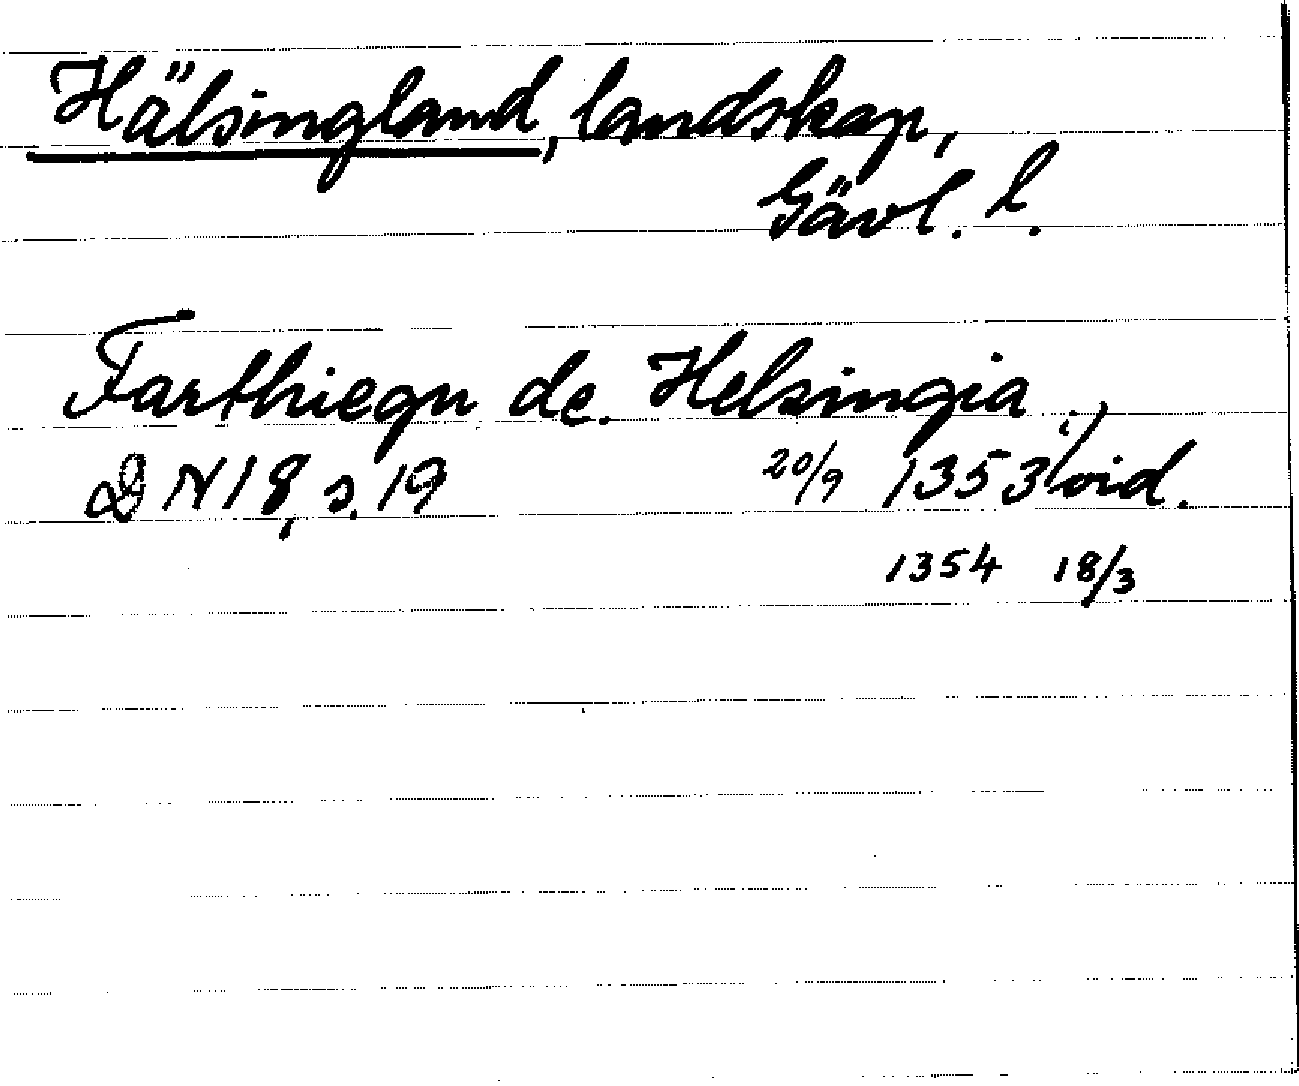 Hälsingland, landskap,
Gävl. l.
Farthiegn de. Helsingia
DN 18, s. 19 20/9 1353 i vid.
1354 18/3